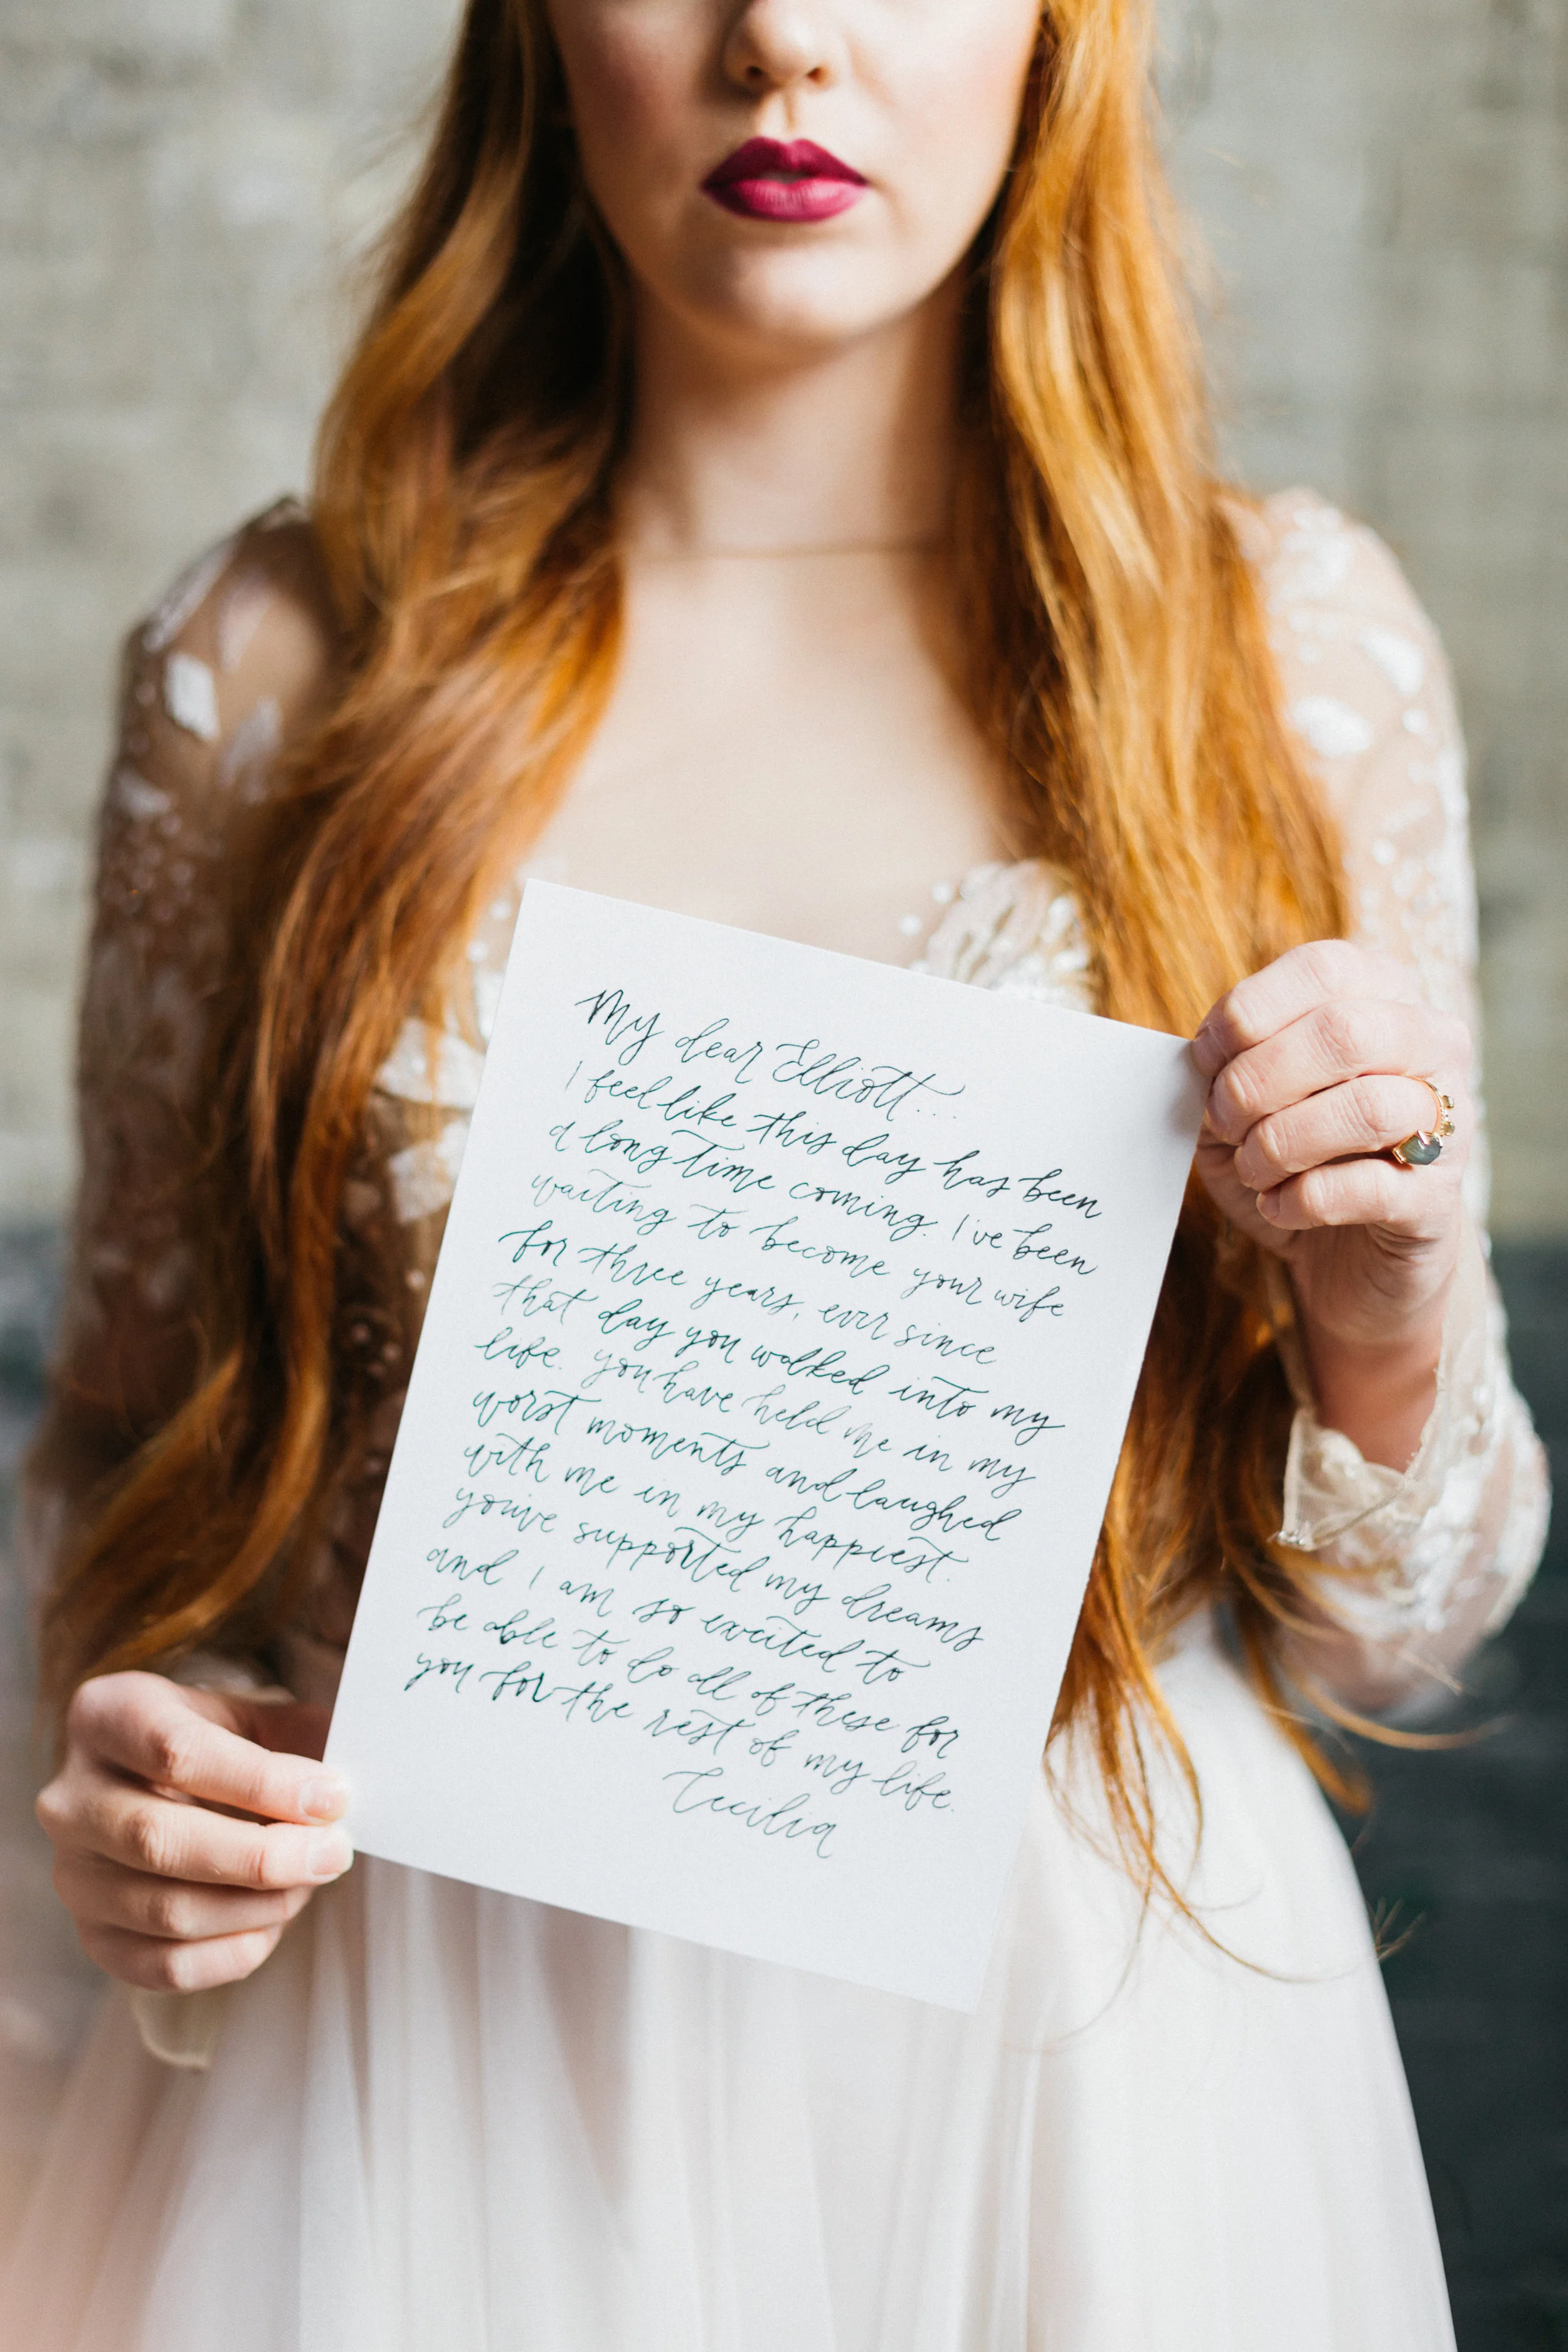 My dear Elliott...
I feel like this day has been
a long time coming. I've been
waiting to become your wife
for three years, ever since
that day you walked into my
life. you have held me in my
worst moments and laughed
with me in my happiest.
you've supported my dreams
and I am so excited to
be able to do all of these for
you for the rest of my life.
Cecilia